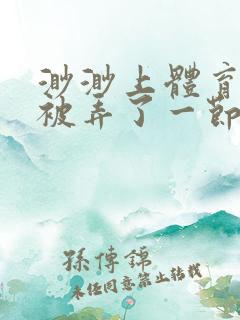 渺渺上體育
被弄了一節
孫傳錦
未經同意禁止轉載